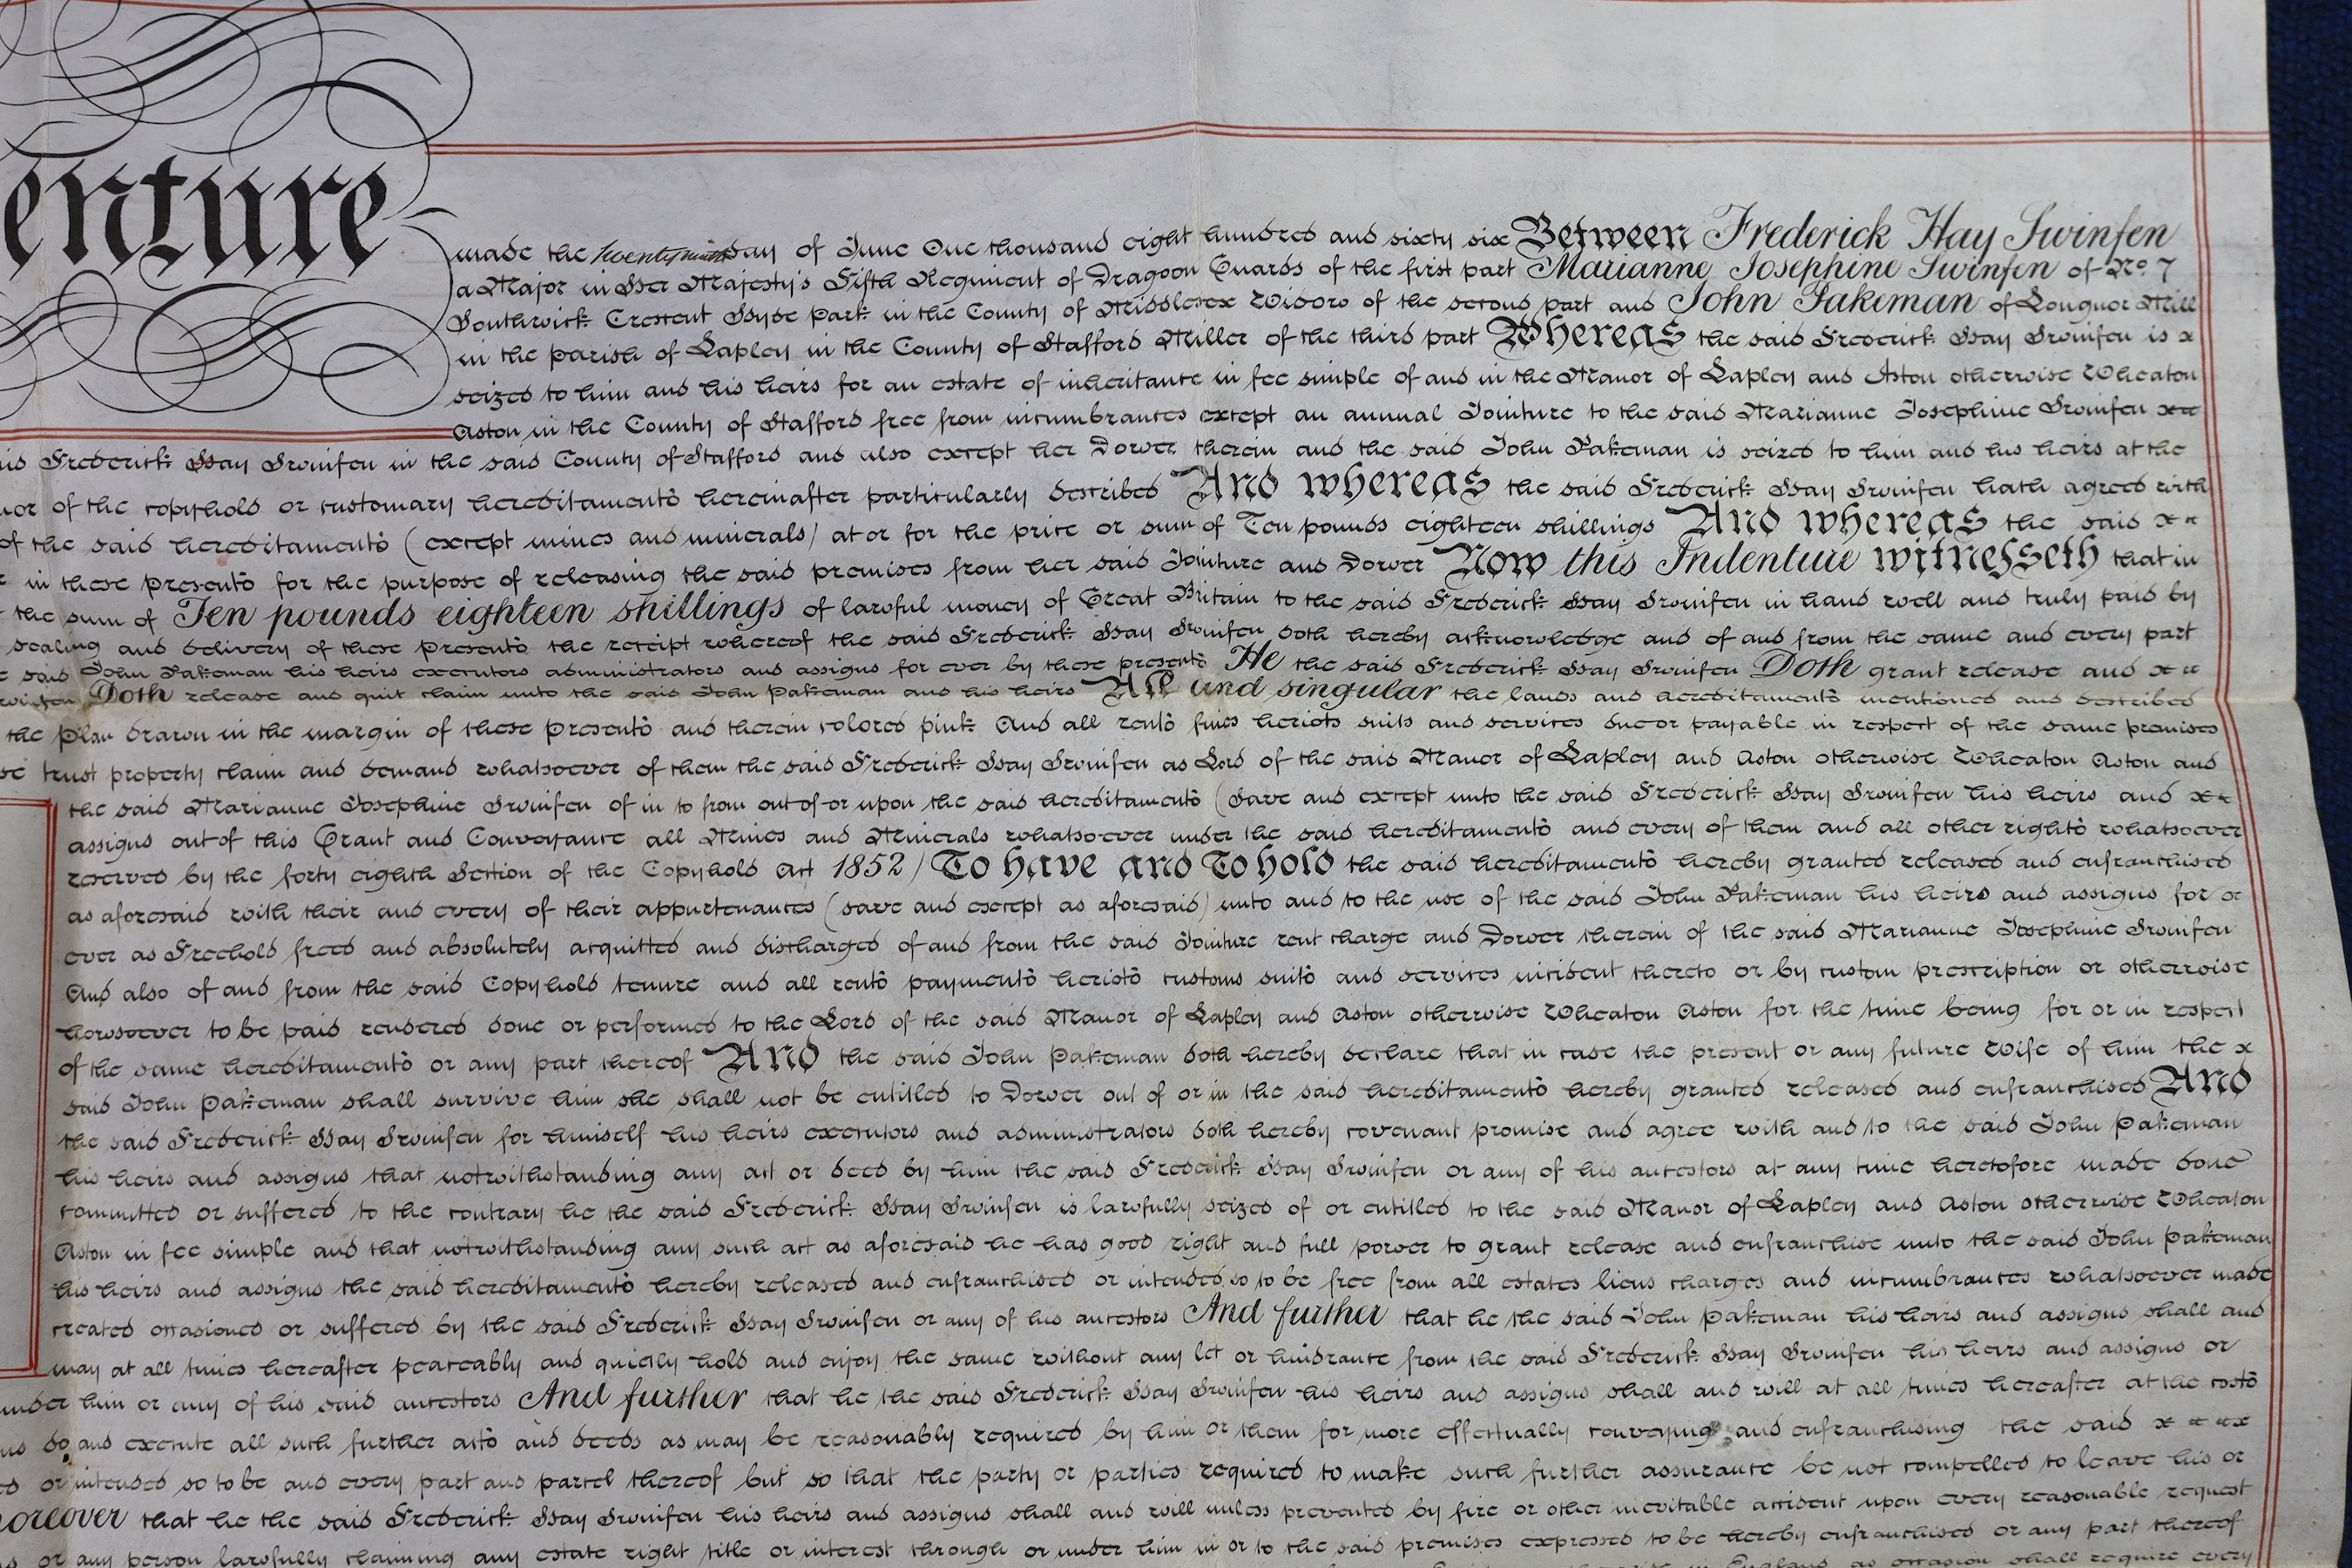 enture
made the twentyninth day of June One thousand eight hundred and sixty six Between Frederick Hay Swinfen
a Major in Her Majesty's Fifth Regiment of Dragoon Guards of the first part Marianne Josephine Swinfen of No. 7
Southwick Crescent Hyde Park in the County of Middlesex Widow of the second part and John Pakeman of Longnor Mill
in the parish of Lapley in the County of Stafford Miller of the third part Whereas the said Frederick Hay Swinfen is x
seized to him and his heirs for an estate of inheritance in fee simple of and in the Manor of Lapley and Aston otherwise Wheaton
Aston in the County of Stafford free from incumbrances except an annual Jointure to the said Marianne Josephine Swinfen xx
id Frederick Hay Swinfen in the said County of Stafford and also except her Dower therein and the said John Pakeman is seized to him and his heirs at the
nor of the copyhold or customary hereditaments hereinafter particularly described And whereas the said Frederick Hay Swinfen hath agreed with
of the said hereditaments (except mines and minerals) at or for the price or sum of Ten pounds eighteen shillings And whereas the said x x
in these presents for the purpose of releasing the said premises from her said Jointure and Dower Now this Indenture witnesseth that in
the sum of Ten pounds eighteen shillings of lawful money of Great Britain to the said Frederick Hay Swinfen in hand well and truly paid by
sealing and delivery of these presents the receipt whereof the said Frederick Hay Swinfen doth hereby acknowledge and of and from the same and every part
said John Pakeman his heirs executors administrators and assigns for ever by these presents He the said Frederick Hay Swinfen Doth grant release and x x
winfen Doth release and quit claim unto the said John Pakeman and his heirs All and singular the lands and hereditaments mentioned and described
the Plan drawn in the margin of these presents and therein colored pink And all rents fines heriots suits and services due or payable in respect of the same premises
se trust property claim and demand whatsoever of them the said Frederick Hay Swinfen as Lord of the said Manor of Lapley and Aston otherwise Wheaton Aston and
the said Marianne Josephine Swinfen of in to from out of or upon the said hereditaments (Save and except unto the said Frederick Hay Swinfen his heirs and x x
assigns out of this Grant and Conveyance all Mines and Minerals whatsoever under the said hereditaments and every of them and all other rights whatsoever
reserved by the forty eighth Section of the Copyhold Act 1852) To have and To hold the said hereditaments hereby granted released and enfranchised
as aforesaid with their and every of their appurtenances (save and except as aforesaid) unto and to the use of the said John Pakeman his heirs and assigns for x
ever as Freehold freed and absolutely acquitted and discharged of and from the said Jointure rent charge and Dower therein of the said Marianne Josephine Swinfen
And also of and from the said Copyhold tenure and all rents payments heriots customs suits and services incident thereto or by custom prescription or otherwise
howsoever to be paid rendered done or performed to the Lord of the said Manor of Lapley and Aston otherwise Wheaton Aston for the time being for or in respect
of the same hereditaments or any part thereof And the said John Pakeman doth hereby declare that in case the present or any future Wife of him the x
said John Pakeman shall survive him she shall not be entitled to Dower out of or in the said hereditaments hereby granted released and enfranchised And
the said Frederick Hay Swinfen for himself his heirs executors and administrators doth hereby covenant promise and agree with and to the said John Pakeman
his heirs and assigns that notwithstanding any act or deed by him the said Frederick Hay Swinfen or any of his ancestors at any time heretofore made done
committed or suffered to the contrary he the said Frederick Hay Swinfen is lawfully seized of or entitled to the said Manor of Lapley and Aston otherwise Wheaton
Aston in fee simple and that notwithstanding any such act as aforesaid he has good right and full power to grant release and enfranchise unto the said John Pakeman
his heirs and assigns the said hereditaments hereby released and enfranchised or intended so to be free from all estates liens charges and incumbrances whatsoever made
created occasioned or suffered by the said Frederick Hay Swinfen or any of his ancestors And further that he the said John Pakeman his heirs and assigns shall and
may at all times hereafter peaceably and quietly hold and enjoy the same without any let or hindrance from the said Frederick Hay Swinfen his heirs and assigns or
under him or any of his said ancestors And further that he the said Frederick Hay Swinfen his heirs and assigns shall and will at all times hereafter at the costs
ns do and execute all such further acts and deeds as may be reasonably required by him or them for more effectually conveying and enfranchising the said x x x x
ed or intended so to be and every part and parcel thereof but so that the party or parties required to make such further assurance be not compelled to leave his or
oreover that he the said Frederick Hay Swinfen his heirs and assigns shall and will unless prevented by fire or other inevitable accident upon every reasonable request
or any person lawfully claiming any estate right title or interest through or under him in or to the said premises expressed to be hereby enfranchised or any part thereof
in England as occasion shall require every